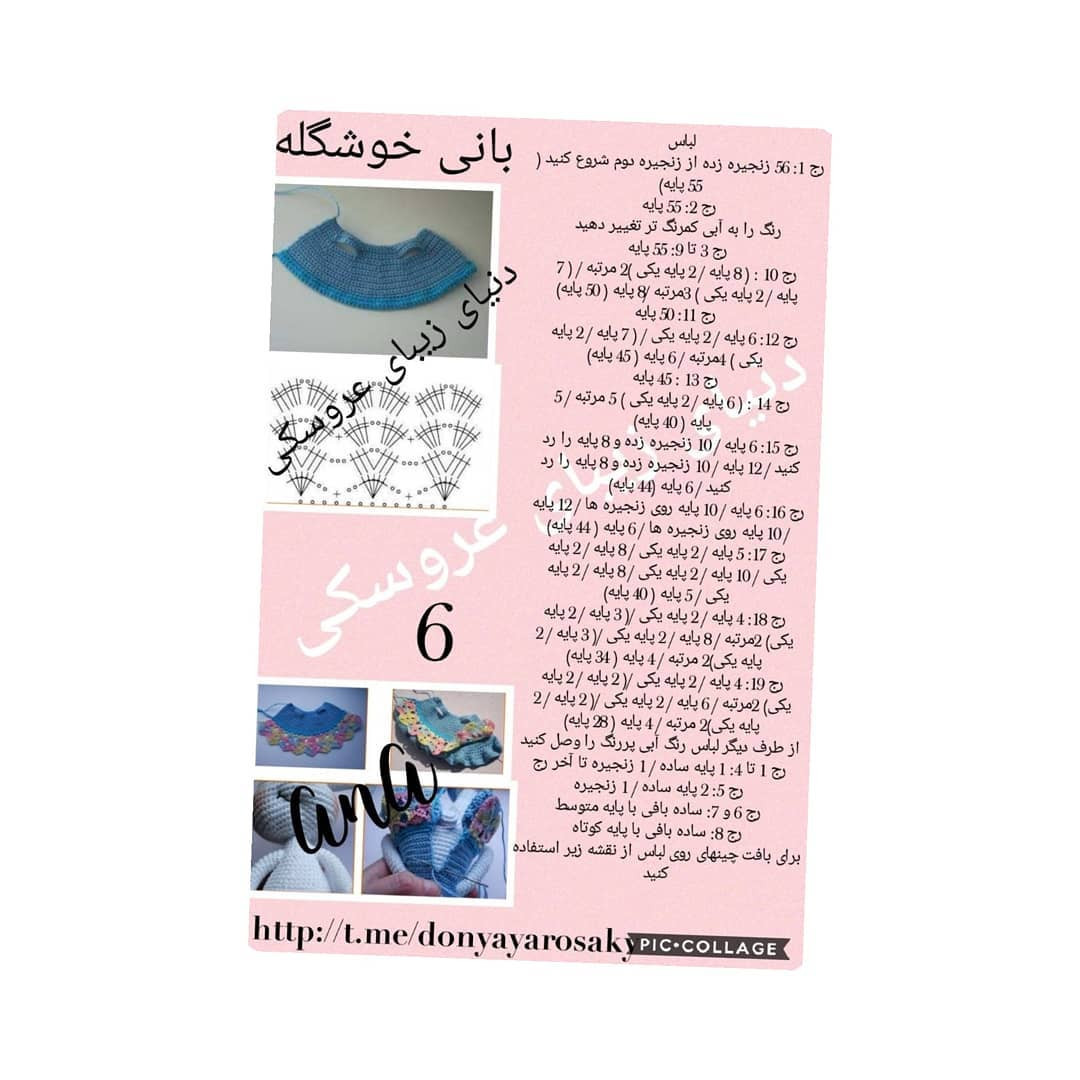 بانی خوشگله
لباس
رج 1: 56 زنجیره زده از زنجیره دوم شروع کنید (
55 پایه)
رج 2: 55 پایه
رنگ را به آبی کمرنگ تر تغییر دهید
رج 3 تا 9: 55 پایه
رج 10 : ( 8 پایه / 2 پایه یکی )2 مرتبه / ( 7
پایه / 2 پایه یکی ) 3مرتبه /8 پایه ( 50 پایه)
رج 11: 50 پایه
رج 12: 6 پایه / 2 پایه یکی / ( 7 پایه / 2 پایه
یکی ) 4مرتبه / 6 پایه ( 45 پایه)
رج 13 : 45 پایه
رج 14 : ( 6 پایه / 2 پایه یکی ) 5 مرتبه / 5
پایه ( 40 پایه)
رج 15: 6 پایه / 10 زنجیره زده و 8 پایه را رد
کنید / 12 پایه / 10 زنجیره زده و 8 پایه را رد
کنید / 6 پایه (44 پایه)
رج 16: 6 پایه / 10 پایه روی زنجیره ها / 12 پایه
/ 10 پایه روی زنجیره ها / 6 پایه ( 44 پایه)
رج 17: 5 پایه / 2 پایه یکی / 8 پایه / 2 پایه
یکی / 10 پایه / 2 پایه یکی / 8 پایه / 2 پایه
یکی / 5 پایه ( 40 پایه)
رج 18: 4 پایه / 2 پایه یکی /( 3 پایه / 2 پایه
یکی) 2مرتبه / 8 پایه / 2 پایه یکی /( 3 پایه / 2
پایه یکی)2 مرتبه / 4 پایه ( 34 پایه)
رج 19: 4 پایه / 2 پایه یکی /( 2 پایه / 2 پایه
یکی) 2مرتبه / 6 پایه / 2 پایه یکی /( 2 پایه / 2
پایه یکی)2 مرتبه / 4 پایه ( 28 پایه)
از طرف دیگر لباس رنگ آبی پررنگ را وصل کنید
رج 1 تا 4: 1 پایه ساده / 1 زنجیره تا آخر رج
رج 5: 2 پایه ساده / 1 زنجیره
رج 6 و 7: ساده بافی با پایه متوسط
رج 8: ساده بافی با پایه کوتاه
برای بافت چینهای روی لباس از نقشه زیر استفاده
کنید
دنیای زیبای عروسکی
دنیای زیبای عروسکی
6
ana
http://t.me/donyayarosaky
PIC•COLLAGE